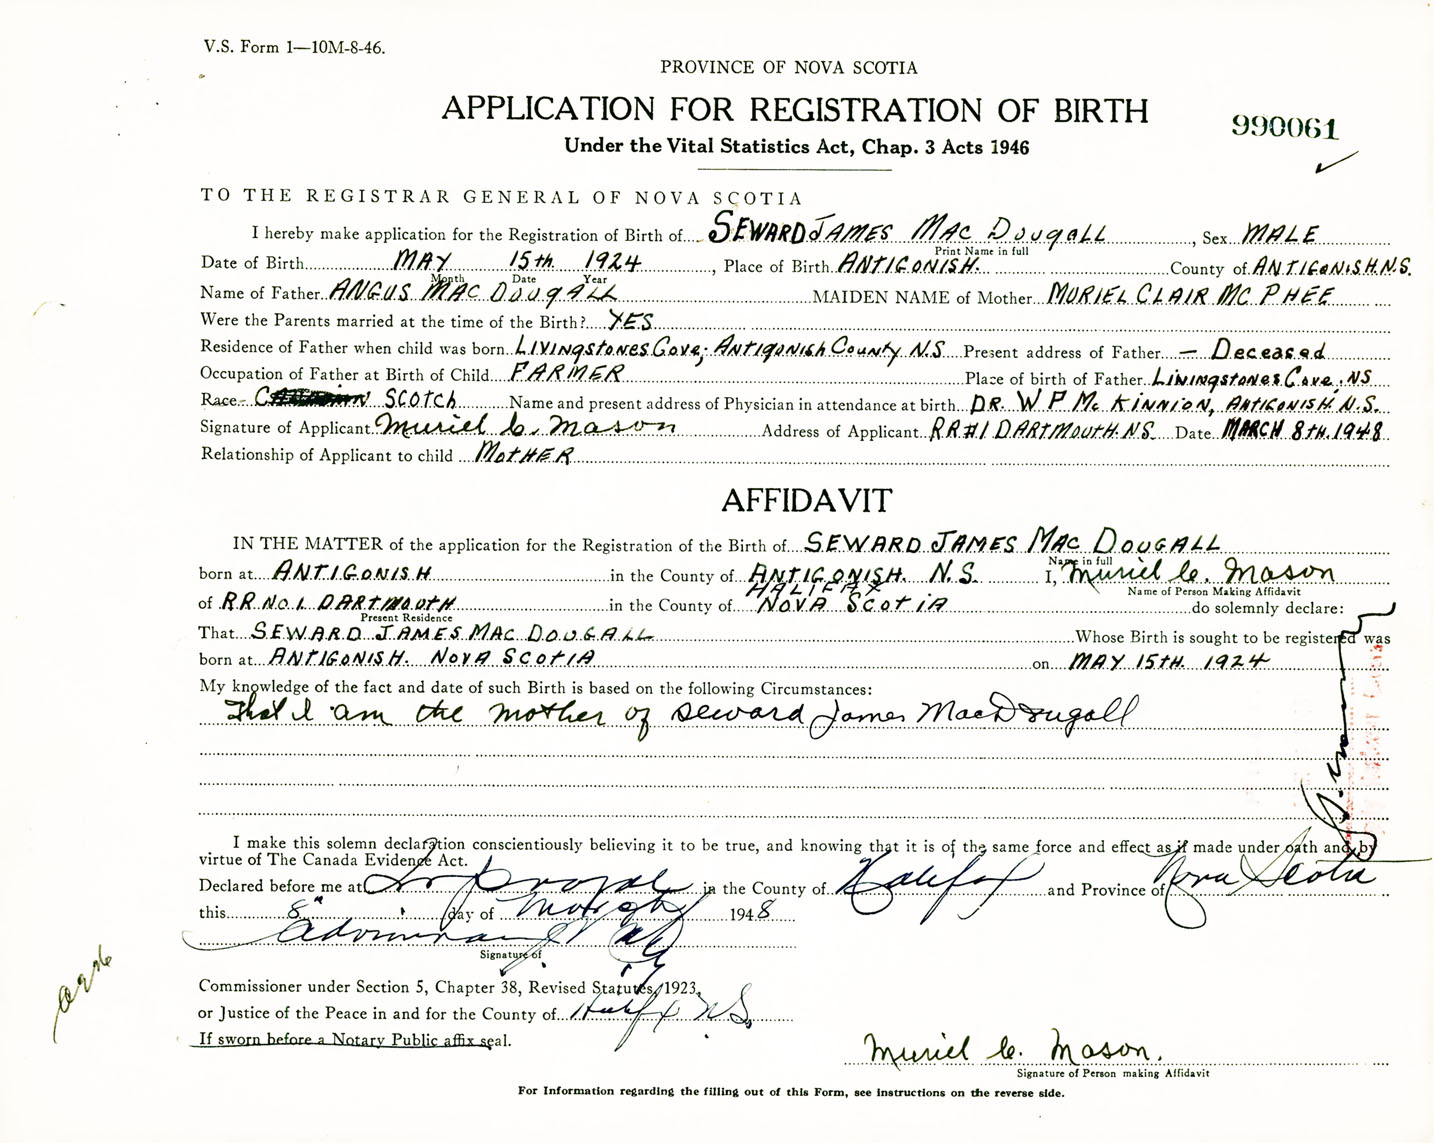 V.S. Form 1—10M-8-46.
PROVINCE OF NOVA SCOTIA
APPLICATION FOR REGISTRATION OF BIRTH
990061
Under the Vital Statistics Act, Chap. 3 Acts 1946
TO THE REGISTRAR GENERAL OF NOVA SCOTIA
I hereby make application for the Registration of Birth of SEWARD JAMES MAC DOUGALL, Sex MALE
Print Name in full
Date of Birth MAY 15th 1924, Place of Birth ANTIGONISH. County of ANTIGONISH. N.S.
Month Date Year
Name of Father ANGUS MAC DOUGALL MAIDEN NAME of Mother MURIEL CLAIR MC PHEE
Were the Parents married at the time of the Birth? YES
Residence of Father when child was born LIVINGSTONES COVE; ANTIGONISH COUNTY N.S Present address of Father — Deceased
Occupation of Father at Birth of Child FARMER Place of birth of Father LIVINGSTONES COVE, NS
Race SCOTCH Name and present address of Physician in attendance at birth DR. W P Mc KINNION, ANTIGONISH N.S.
Signature of Applicant Muriel C. Mason Address of Applicant RR#1 DARTMOUTH. N.S. Date MARCH 8TH. 1948
Relationship of Applicant to child MOTHER
AFFIDAVIT
IN THE MATTER of the application for the Registration of the Birth of SEWARD JAMES MAC DOUGALL
Name in full
born at ANTIGONISH in the County of ANTIGONISH. N.S. I, Muriel C. Mason
Name of Person Making Affidavit
HALIFAX
of R.R. No. 1. DARTMOUTH in the County of NOVA SCOTIA do solemnly declare:
Present Residence
That SEWARD JAMES MAC DOUGALL Whose Birth is sought to be registered was
born at ANTIGONISH. NOVA SCOTIA on MAY 15TH. 1924
My knowledge of the fact and date of such Birth is based on the following Circumstances:
That I am the mother of Seward James MacDougall
I make this solemn declaration conscientiously believing it to be true, and knowing that it is of the same force and effect as if made under oath and by
virtue of The Canada Evidence Act.
Declared before me at in the County of Halifax and Province of Nova Scotia
this 8th day of March 1948
Signature of
Commissioner under Section 5, Chapter 38, Revised Statutes, 1923,
or Justice of the Peace in and for the County of Halifax N.S.
If sworn before a Notary Public affix seal.
Muriel C. Mason.
Signature of Person making Affidavit
For Information regarding the filling out of this Form, see instructions on the reverse side.